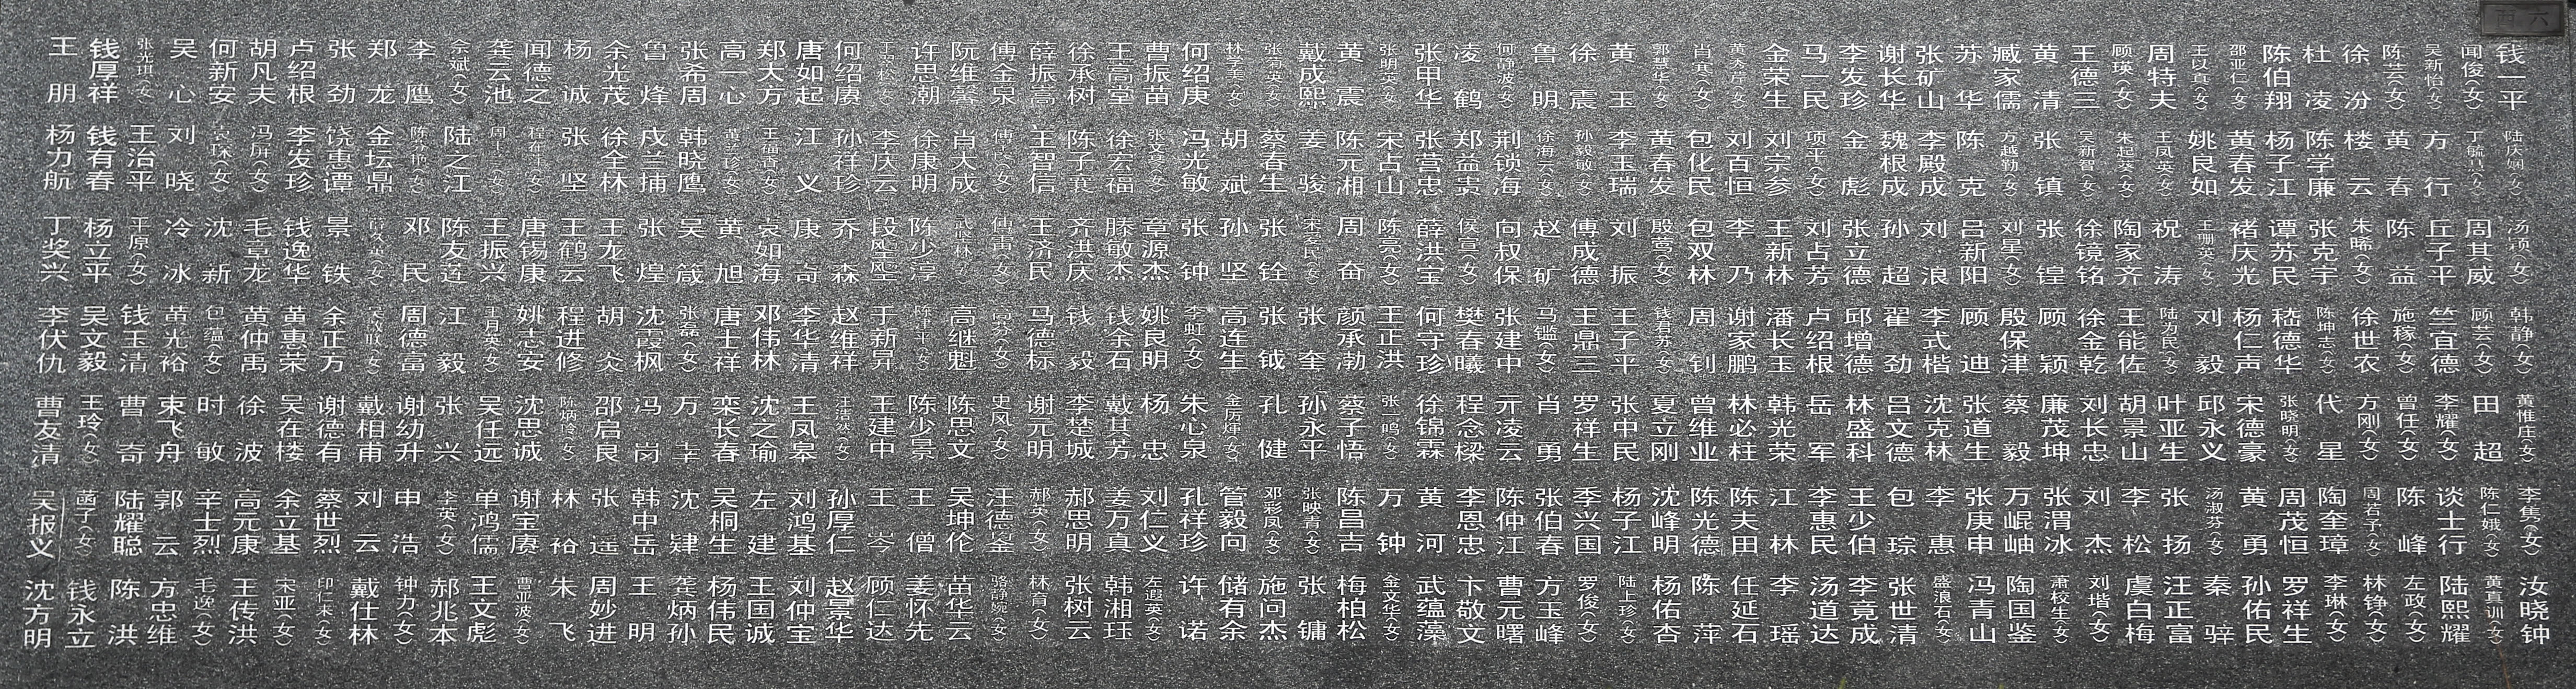 钱一平 闻俊(女) 吴新怡(女) 陈芸(女) 徐汾 杜凌 陈伯翔 邵亚仁(女) 王以真(女) 周特夫 顾瑛(女) 王德三 黄清 臧家儒 苏华 张矿山 谢长华 李发珍 马一民 金荣生 肖寒(女) 郭慧华(女) 黄玉 徐震 鲁明 何静波(女) 凌鹤 张甲华 张明英(女) 黄震 戴成熙 张菊英(女) 林学美(女) 何绍庚 曹振苗 王高堂 徐承树 薛振嵩 傅金泉 阮维馨 许思潮 何绍赓 唐如起 郑大方 高一心 张希周 鲁烽 余光茂 杨诚 闻德之 龚云池 余斌(女) 李鹰 郑龙 张劲 卢绍根 胡凡夫 何新安 吴心 张光琪(女) 钱厚祥 王朋
陆庆娴(女) 丁毓昌(女) 方行 黄春 楼云 陈学廉 杨子江 黄春发 姚良如 王凤英(女) 朱起葵(女) 吴新智(女) 张镇 方越勤(女) 陈克 李殿成 魏根成 金彪 项平(女) 刘宗参 刘百恒 包化民 黄春发 李玉瑞 孙毅敏(女) 徐海云(女) 荆锁海 郑益寅 张营忠 宋占山 陈元湘 姜骏 蔡春生 胡斌 冯光敏 张文亭(女) 徐宏福 陈子蓂 王智信 肖太成 徐康明 李庆云 孙祥珍 江义 王福香(女) 韩晓鹰 戍兰捕 徐全林 张坚 陆之江 金坛鼎 饶惠谭 李发珍 冯屏(女) 刘晓 王治平 钱有春 杨力航
汤颖(女) 周其威 丘子平 陈益 朱晞(女) 张克宇 谭苏民 褚庆光 王珊英(女) 祝涛 陶家齐 徐镜铭 张锽 刘星(女) 吕新阳 刘浪 孙超 张立德 刘占芳 王新林 李乃 包双林 殷莺(女) 刘振 傅成德 赵矿 向叔保 侯宣(女) 薛洪宝 陈亮(女) 周奋 宋爱民(女) 张铨 孙坚 张钟 章源杰 滕敏杰 齐洪庆 王济民 傅雷(女) 武晓林(女) 陈少淳 段凤至 乔森 康奇 袁如海 黄旭 吴箴 张煌 王龙飞 王鹤云 唐锡康 王振兴 陈友莲 邓民 景铁 钱逸华 毛章龙 沈新 冷冰 平原(女) 杨立平 丁奖兴
韩静(女) 顾芸(女) 竺宜德 施稼(女) 徐世农 陈坤志(女) 嵇德华 杨仁声 刘毅 陆为民(女) 王能佐 徐金乾 顾颖 殷保津 顾迪 李式楷 翟劲 邱增德 卢绍根 潘长玉 谢家鹏 周钊 钱君苏(女) 王子平 王鼎三 马镒(女) 张建中 樊春曦 何守珍 王正洪 颜承渤 张奎 张钺 高连生 李虹(女) 姚良明 钱余石 钱毅 马德标 高芬(女) 高继魁 陈平(女) 于新昇 赵维祥 李华清 邓伟林 唐士祥 张磊(女) 沈霞枫 胡炎 程进修 姚志安 王月英(女) 江毅 周德富 余正方 黄惠荣 黄仲禹 包蕴(女) 黄光裕 钱玉清 吴文毅 李伏仇
黄惟庄(女) 田超 李耀(女) 曾任(女) 方刚(女) 代星 张晓明(女) 宋德豪 邱永义 叶亚生 胡景山 刘长忠 廉茂坤 蔡毅 张道生 沈克林 吕文德 林盛科 岳军 韩光荣 林必柱 曾维业 夏立刚 张中民 罗祥生 肖勇 亓凌云 程念樑 徐锦霖 张一鸣(女) 蔡子悟 孙永平 孔健 金厉煇(女) 朱心泉 杨忠 戴其芳 李楚城 谢元明 史凤(女) 陈思文 陈少景 王建中 汪洁然(女) 王凤皋 沈之瑜 栾长春 万幸 冯岗 邵启良 陈炳玲(女) 沈思诚 吴任远 张兴 谢幼升 戴相甫 谢德有 吴在楼 徐波 时敏 束飞舟 曹奇 王玲(女) 曹友清
李隽(女) 陈仁娥(女) 谈士行 陈峰 周若予(女) 陶奎璋 周茂恒 黄勇 汤淑芬(女) 张扬 李松 刘杰 张渭冰 万崐岫 张庚申 李惠 包琮 王少伯 李惠民 江林 陈夫田 陈光德 沈峰明 杨子江 季兴国 张伯春 陈仲江 李恩忠 黄河 万钟 陈昌吉 张映青(女) 邓彩凤(女) 管毅向 孔祥珍 刘仁义 姜万真 郝思明 郝英(女) 汪德鉴 吴坤伦 王僧 王岑 孙厚仁 刘鸿基 左建 吴桐生 沈肄 韩中岳 张遥 林裕 谢宝赓 单鸿儒 李英(女) 申浩 刘云 蔡世烈 余立基 高元康 辛士烈 郭云 陆耀聪 菡子(女) 吴报义
汝晓钟 黄真训(女) 陆熙耀 左政(女) 林铮(女) 李琳(女) 罗祥生 孙佑民 秦骍 汪正富 虞白梅 刘堦(女) 萧校生(女) 陶国鉴 冯青山 盛浪石(女) 张世清 李竟成 汤道达 李瑶 任延石 陈萍 杨佑杏 陆上珍(女) 罗俊(女) 方玉峰 曹元曙 卞敬文 武蕴藻 金文华(女) 梅柏松 张镛 施问杰 储有余 许诺 左遐英(女) 韩湘珏 张树云 林育(女) 骆静婉(女) 苗华云 姜怀先 顾仁达 赵景华 刘仲宝 王国诚 杨伟民 龚炳孙 王明 周妙进 朱飞 曹亚波(女) 王文彪 郝兆本 钟力(女) 戴仕林 印仁来(女) 宋亚(女) 王传洪 毛逸(女) 方忠维 陈洪 钱永立 沈方明